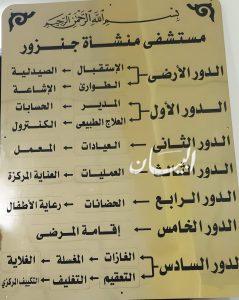 بسم الله الرحمن الرحيم
مستشفى منشأة جنزور
الدور الأرضى الإستقبال ← الصيدلية
الطوارئ ← الإشاعة
الدور الأول المدير ← الحسابات
العلاج الطبيعى ← الكنترول
الدور الثانى العيادات ← المعمل
الدور العمليات ← العناية المركزة
الدور الرابع الحضانات ← رعاية الأطفال
الدور الخامس إقامة المرضى
الدور السادس الغازات ← المغسلة ← الغلاية
التعقيم ← التغليف ← التكييف المركزي